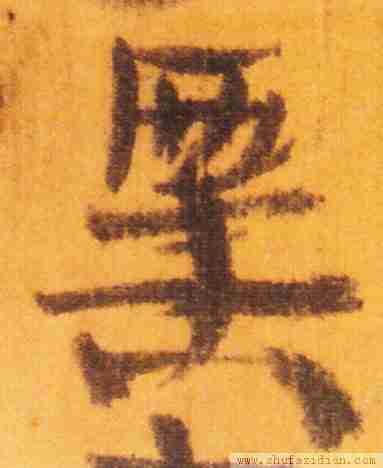 黑
www.shufazidian.com